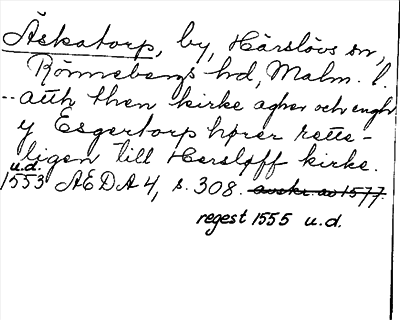 Äskatorp, by, Härslövs sn,
Rönnebergs hd, Malm. l.
-- atth then kirke agher och enghr
y Esgertorp hører rette-
ligen till Hersløff kirke.
u.d.
1553 AEDA 4, s. 308. avskr. av 1577.
regest 1555 u.d.